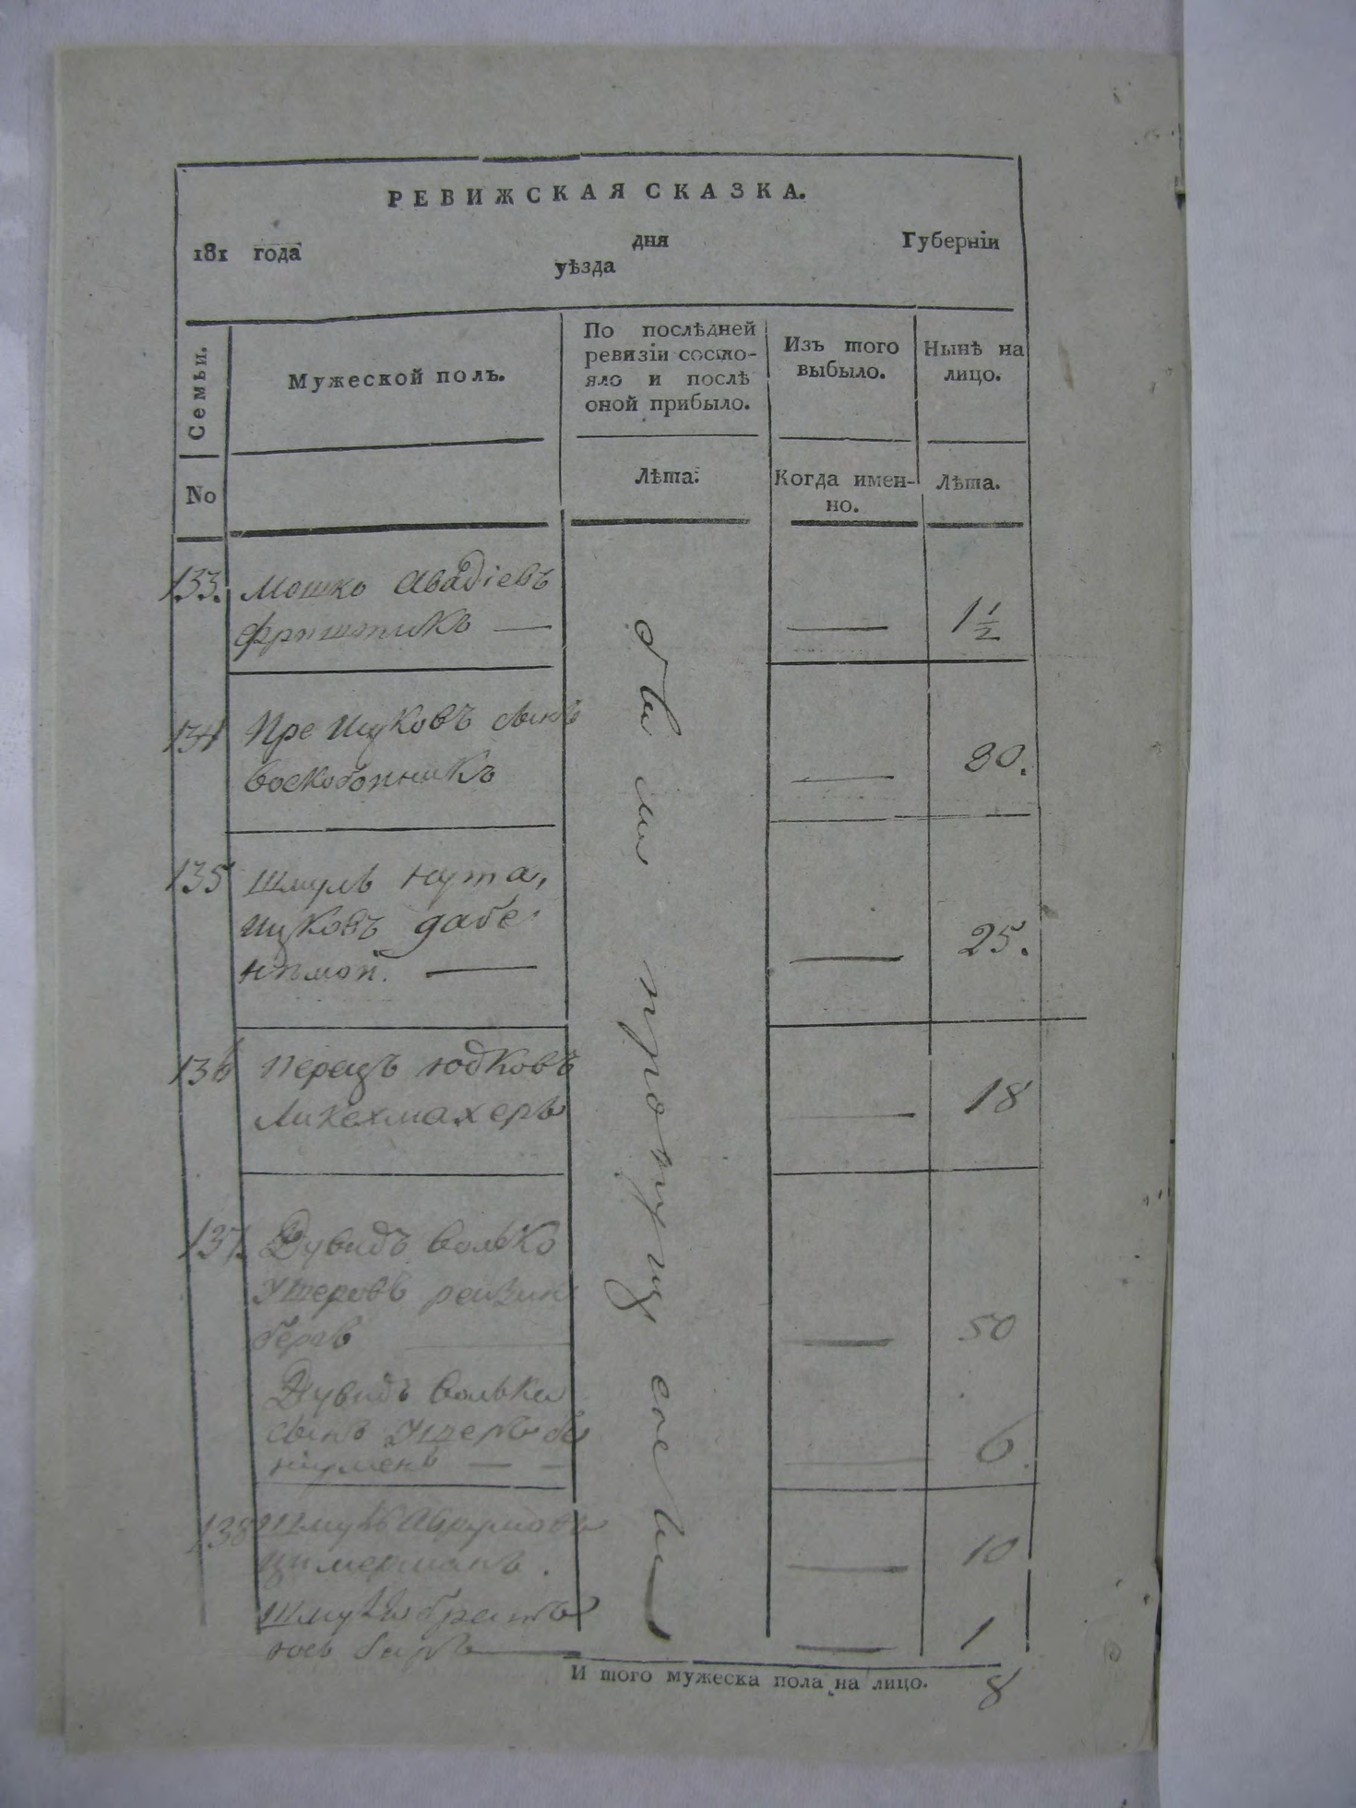 РЕВИЖСКАЯ СКАЗКА.
181 года дня Губерніи
уѣзда
Семьи.
No
Мужеской полъ.
По послѣдней
ревизіи состо-
яло и послѣ
оной прибыло.
Лѣта.
Изъ того
выбыло.
Когда имен-
но.
Нынѣ на
лицо.
Лѣта.
133. Мошко Авадіевъ
фриштикъ — — 1 1/2
134 Ицковъ сынъ
воскобойникъ — 80.
135 Шмуль Нута,
Ицковъ — 25.
136 Перецъ Юдковъ
Ликехмахеръ — 18
137. Дувидъ Волько
Ушеровъ
бергъ — 50
Дувидъ Волька
сынъ Ушеръ
— — — 6.
138 Аврумовъ
Цимерманъ. — 10
братъ
— 1
обыи пропущенны
И того мужеска пола на лицо. 8